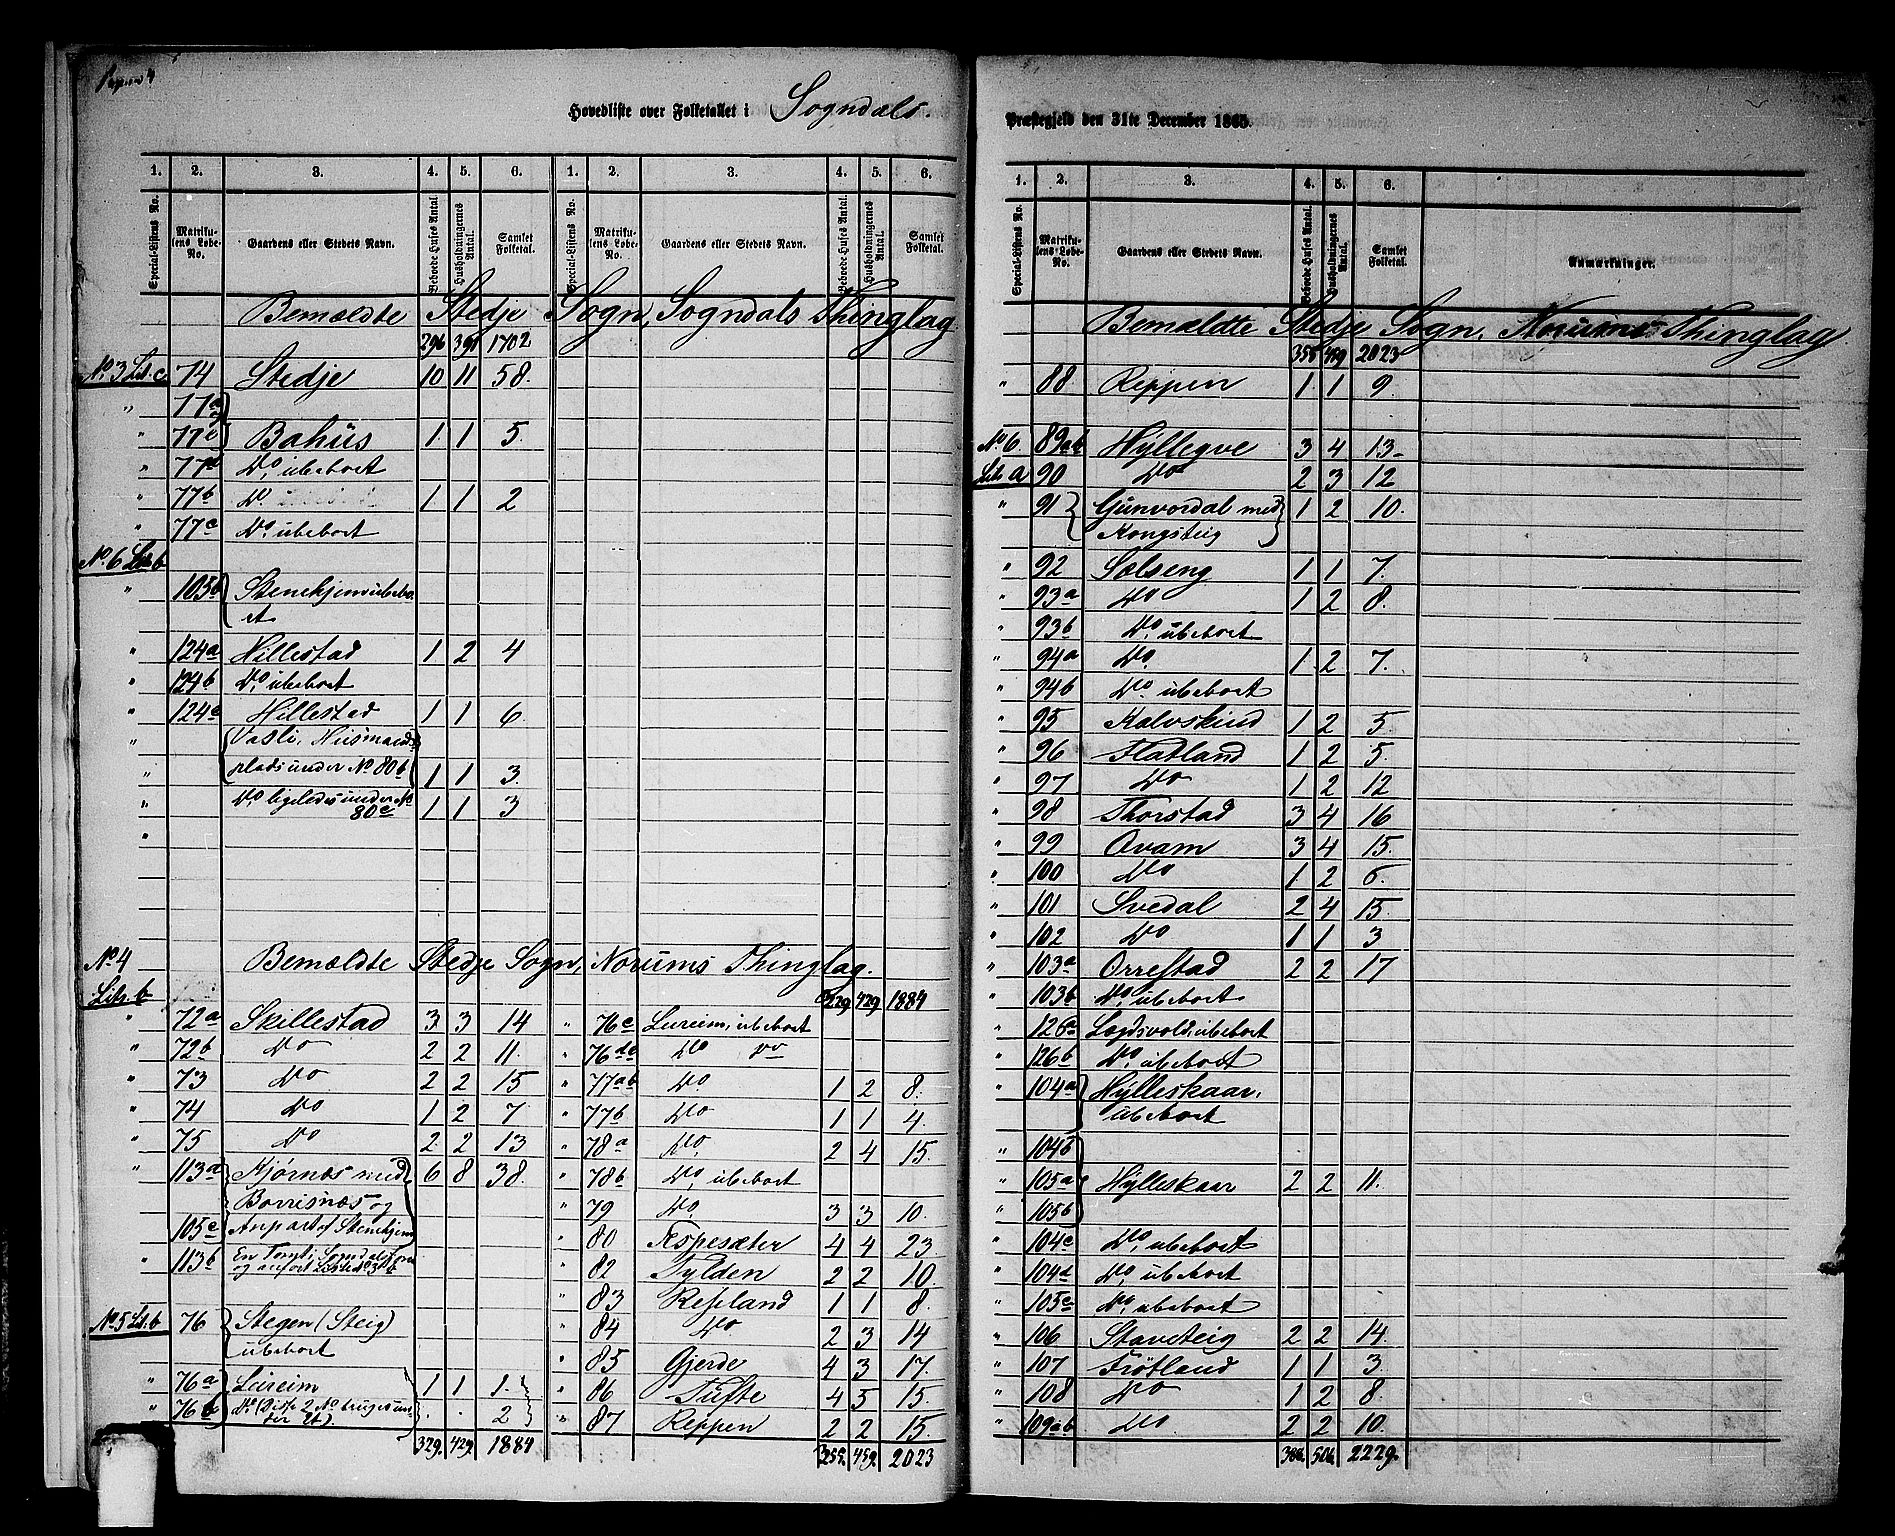 Hovedliste over Folketallet i Sogndals
1. 2. 3. 4. 5. 6. 1. 2. 3. 4. 5. 6.
Special-Listens No. Matrikulens Løbe-No. Gaardens eller Stedets Navn. Beboede Huses Antal. Husholdningernes Antal. Samlet Folketal. Special-Listens No. Matrikulens Løbe-No. Gaardens eller Stedets Navn. Beboede Huses Antal. Husholdningernes Antal. Samlet Folketal.
Bemældte Stedje Sogn, Sogndals Thinglag
296 390 1702.
No. 3 Lit. c 74 Stedje 10 11 58.
" 77a
" 77c Bahüs 1 1 5.
" Do, übeboet
" 77b Do 1 1 2
" 77c Do übeboet
No. 6 Litr b
" 105b Stenehjem übebo-
et.
" 124a Hillestad 1 2 4
" 124b Do, übeboet
" 124c Hillestad 1 1 6
" Vasli, Hüsmands-
" plads under No 80b 1 1 3
" Do ligeledes under No
80c 1 1 3
"
No. 4 Bemældte Stedje Sogn, Norums Thinglag.
Litr. b 329. 429. 1884
" 72a Skillestad 3 3 14 " 76c Leireim, übeboet
" 72b Do 2 2 11. " 76de Do Do
" 73 Do 2 2 15 " 77ab Do. 1 2 8.
" 74 Do 1 2 7 " 77b Do 1 1 4.
" 75 Do 2 2 13 " 78a Do, 2 4 15.
" 113a Kjørnæs med 6 8 38. " 78b Do, übeboet
Borrisnæs og " 79 Do. 3 3 10.
105c Anpart af Stenehjem " 80 Espesæter 4 4 23
" 113b En Tomt i Sogndals " 82 Tylden 2 2 10.
" 83 Repland 1 1 8.
No. 5 Lit. b 76 Stegen (Steig) " 84 Do. 2 3 14
übeboet " 85 Gjerde 4 3 17.
" 76a Leireim 1 1 1. " 86 Tüfte 4 5 15.
" 76b Do. (Disse 2 No brüges un-
der Et) . . 2 " 87 Reppen 2 2 15.
329. 429. 1884 355. 459. 2023
Præstegjeld den 31te December 1865.
1. 2. 3. 4. 5. 6.
Special-Listens No. Matrikulens Løbe-No. Gaardens eller Stedets Navn. Beboede Huses Antal. Husholdningernes Antal. Samlet Folketal. Anmærkninger.
Bemældte Stedje Sogn, Norums Thinglag
355 459 2023
" 88 Reppen 1 1 9.
No. 6 89ab Hyllegve 3 4 13
Litr a 90 Do 2 3 12
" 91 Gunvordal med 1 2 10.
Kongsteig
" 92 Sælseng 1 1 7.
" 93a Do 1 2 8.
" 93b Do, übeboet
" 94a Do. 1 2 7.
" 94b Do übeboet
" 95 Kalvskind 1 2 5
" 96 Flatland 1 2 5.
" 97 Do 1 2 12
" 98 Thorstad 3 4 16
" 99 Qvam 3 4 15.
" 100 Do 1 2 6.
" 101 Svedal 2 4 15.
" 102 Do 1 1 3
" 103a Orrestad 2 2 17
" 103b Do, übeboet.
" 126a Lægdsvold, übeboet
" 126b Do, übeboet
" 104a Hylleskaar.
übeboet
" 104b
" 105a Hylleskaar 2 2 11.
" 105b
" 104c Do, übeboet
" 104d Do, übeboet
" 105c Do, übeboet
" 106 Stavsteig 2 2 14.
" 107 Frötland 1 1 3.
" 108 Do 1 2 8.
" 109ab Do 2 2 10.
386. 506. 2229.